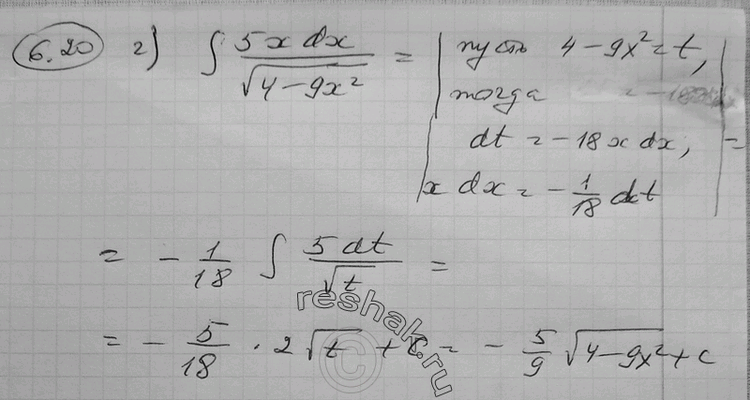 6.20 г) ∫ 5x dx / √(4-9x²) = | пусть 4-9x² = t,
тогда
dt = -18x dx, | =
x dx = -1/18 dt
= -1/18 ∫ 5 dt / √t =
= -5/18 · 2√t + C = -5/9 √(4-9x²) + C
reshak.ru